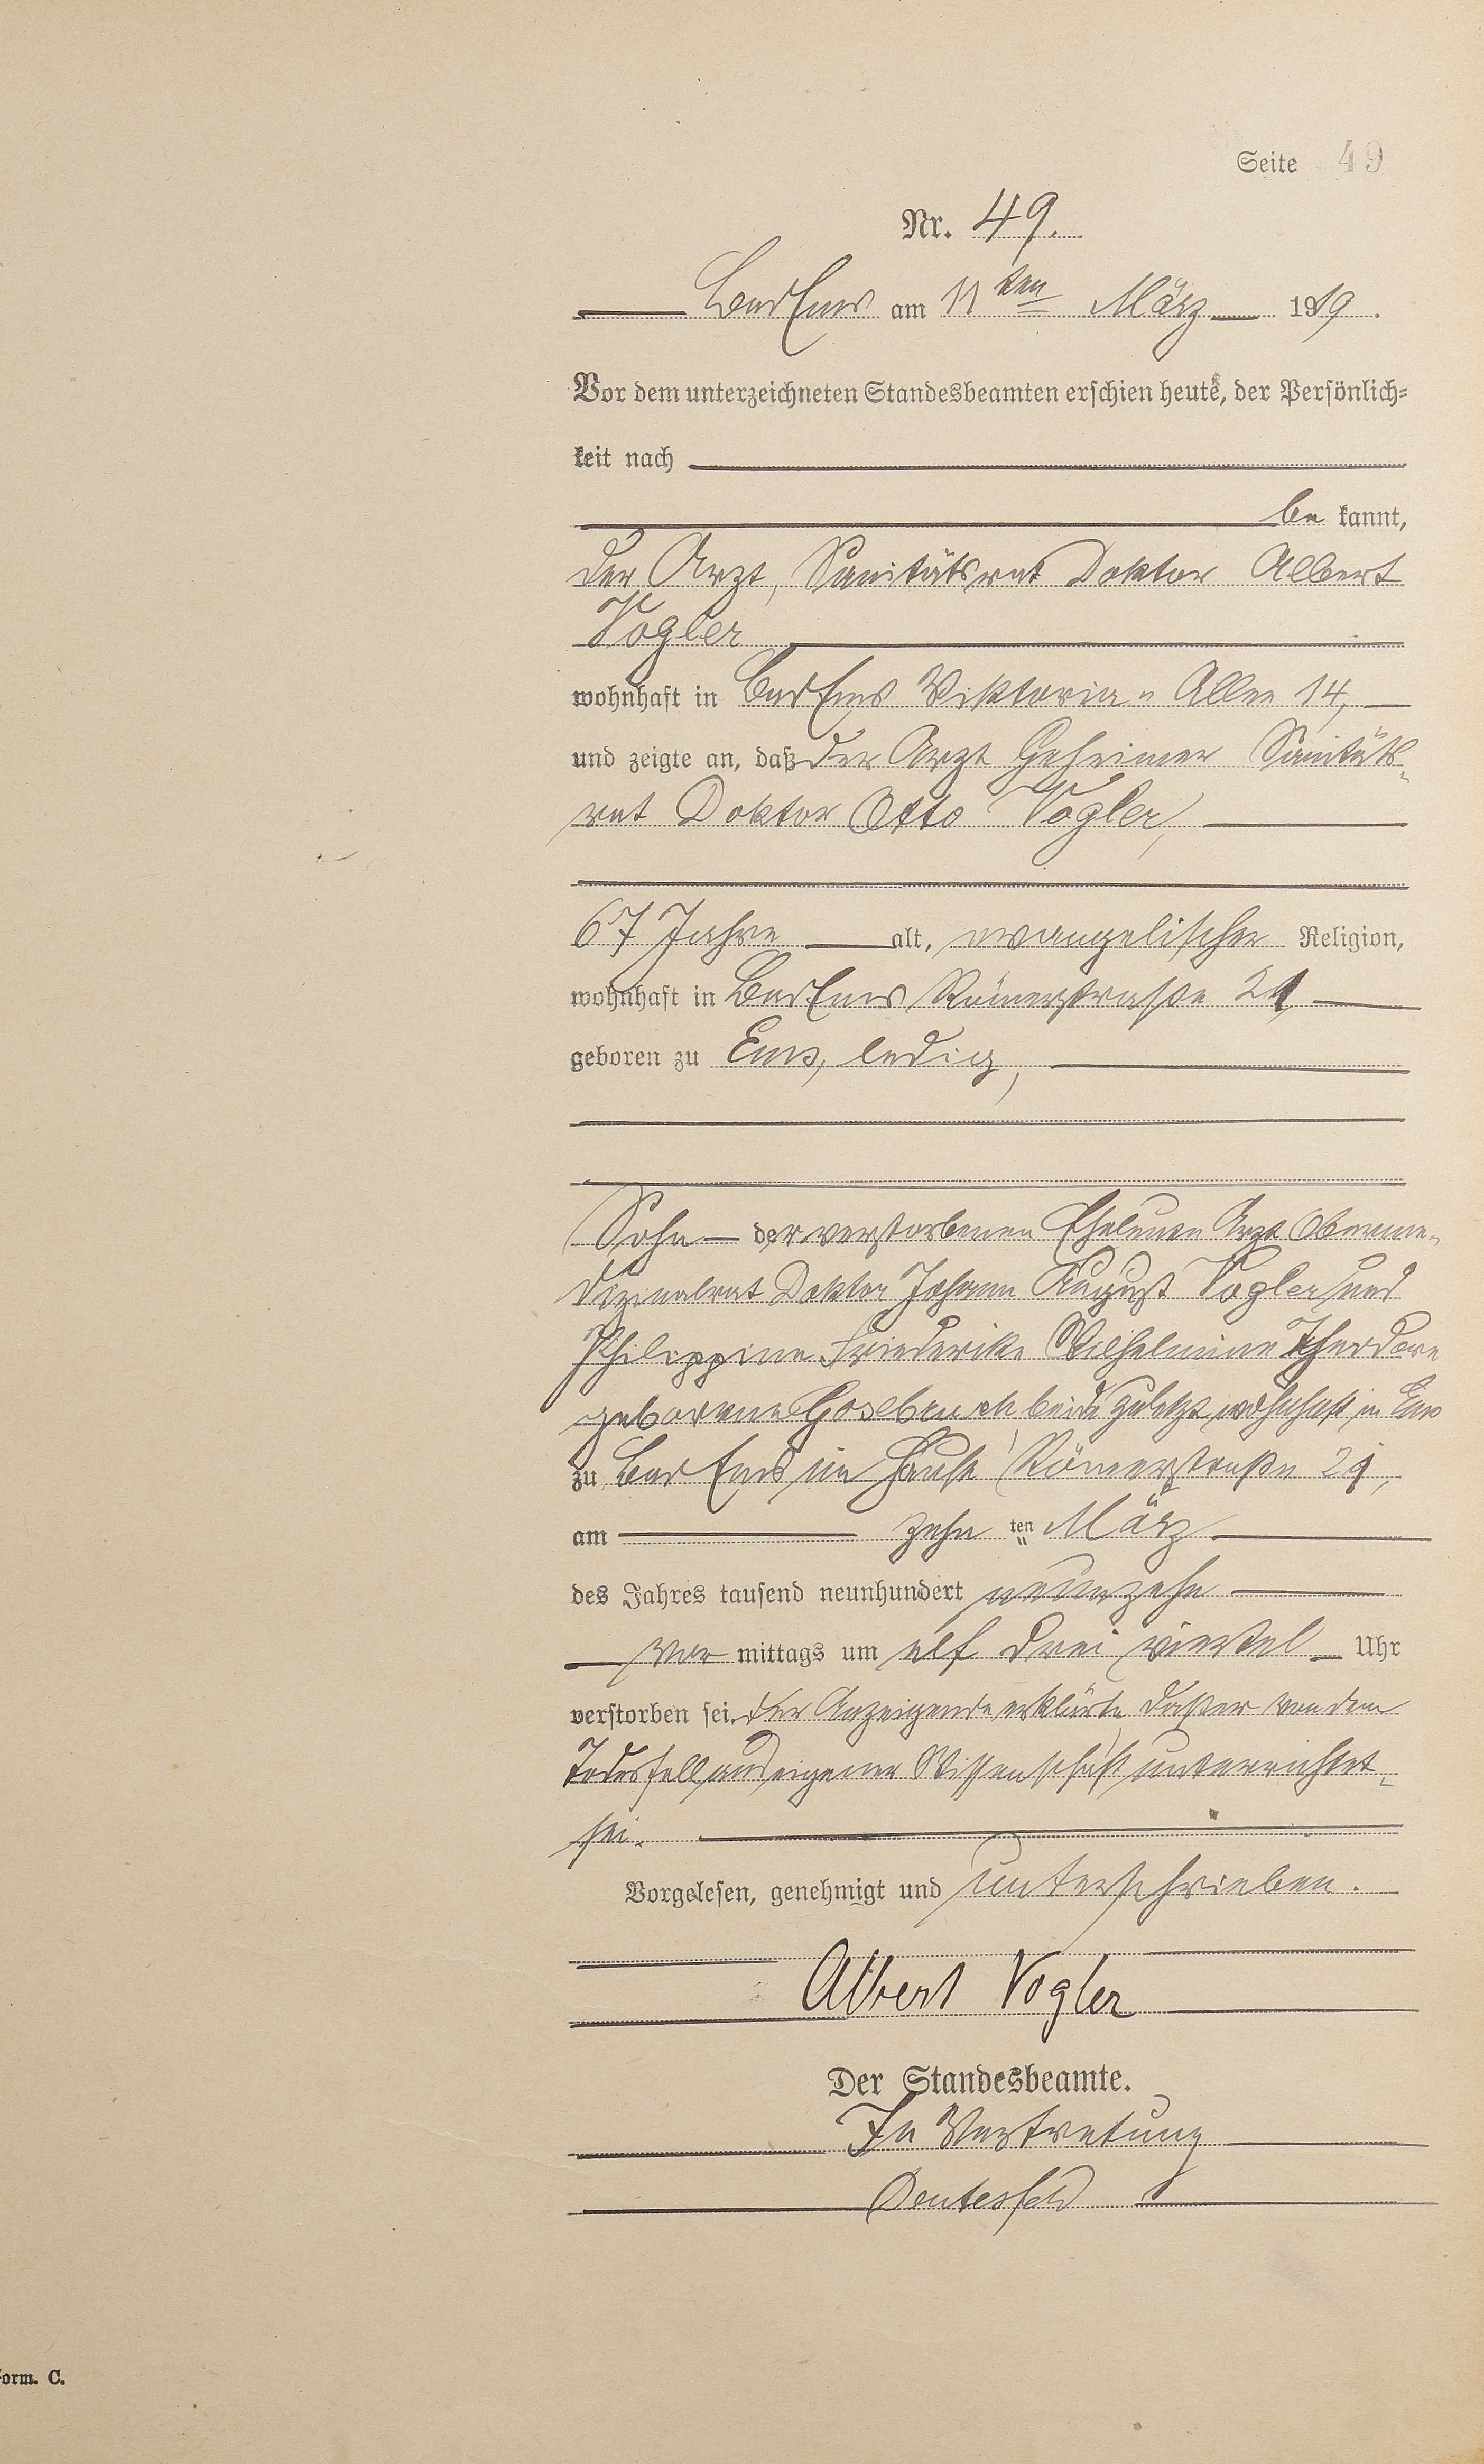 Seite 49
Nr. 49.
Bad Ems am 11ten März 1919.
Vor dem unterzeichneten Standesbeamten erschien heute, der Persönlich=
keit nach
be kannt,
der Arzt, Sanitätsrat Doktor Albert
Vogler
wohnhaft in Bad Ems Viktoria- Allee 14,
und zeigte an, daß der Arzt Geheimer Sanitäts-
rat Doktor Otto Vogler,
67 Jahre alt, evangelischer Religion,
wohnhaft in Bad Ems Römerstraße 21
geboren zu Ems, ledig,
Sohn der verstorbenen Eheleuten Arzt Oberme-
dizinalrat Doktor Johann August Vogler und
Philippine Friederike Wilhelmine Theodore
geborene Gosebruch beide zuletzt wohnhaft in Ems
zu Bad Ems im Hause Römerstraße 21,
am zehn ten März
des Jahres tausend neunhundert neunzehn
vor mittags um elf drei viertel Uhr
verstorben sei. Der Anzeigende erklärte, daß er von dem
Todesfall aus eigener Wissenschaft unterrichtet
sei.
Vorgelesen, genehmigt und unterschrieben.
Albert Vogler
Der Standesbeamte.
In Vertretung
Form. C.